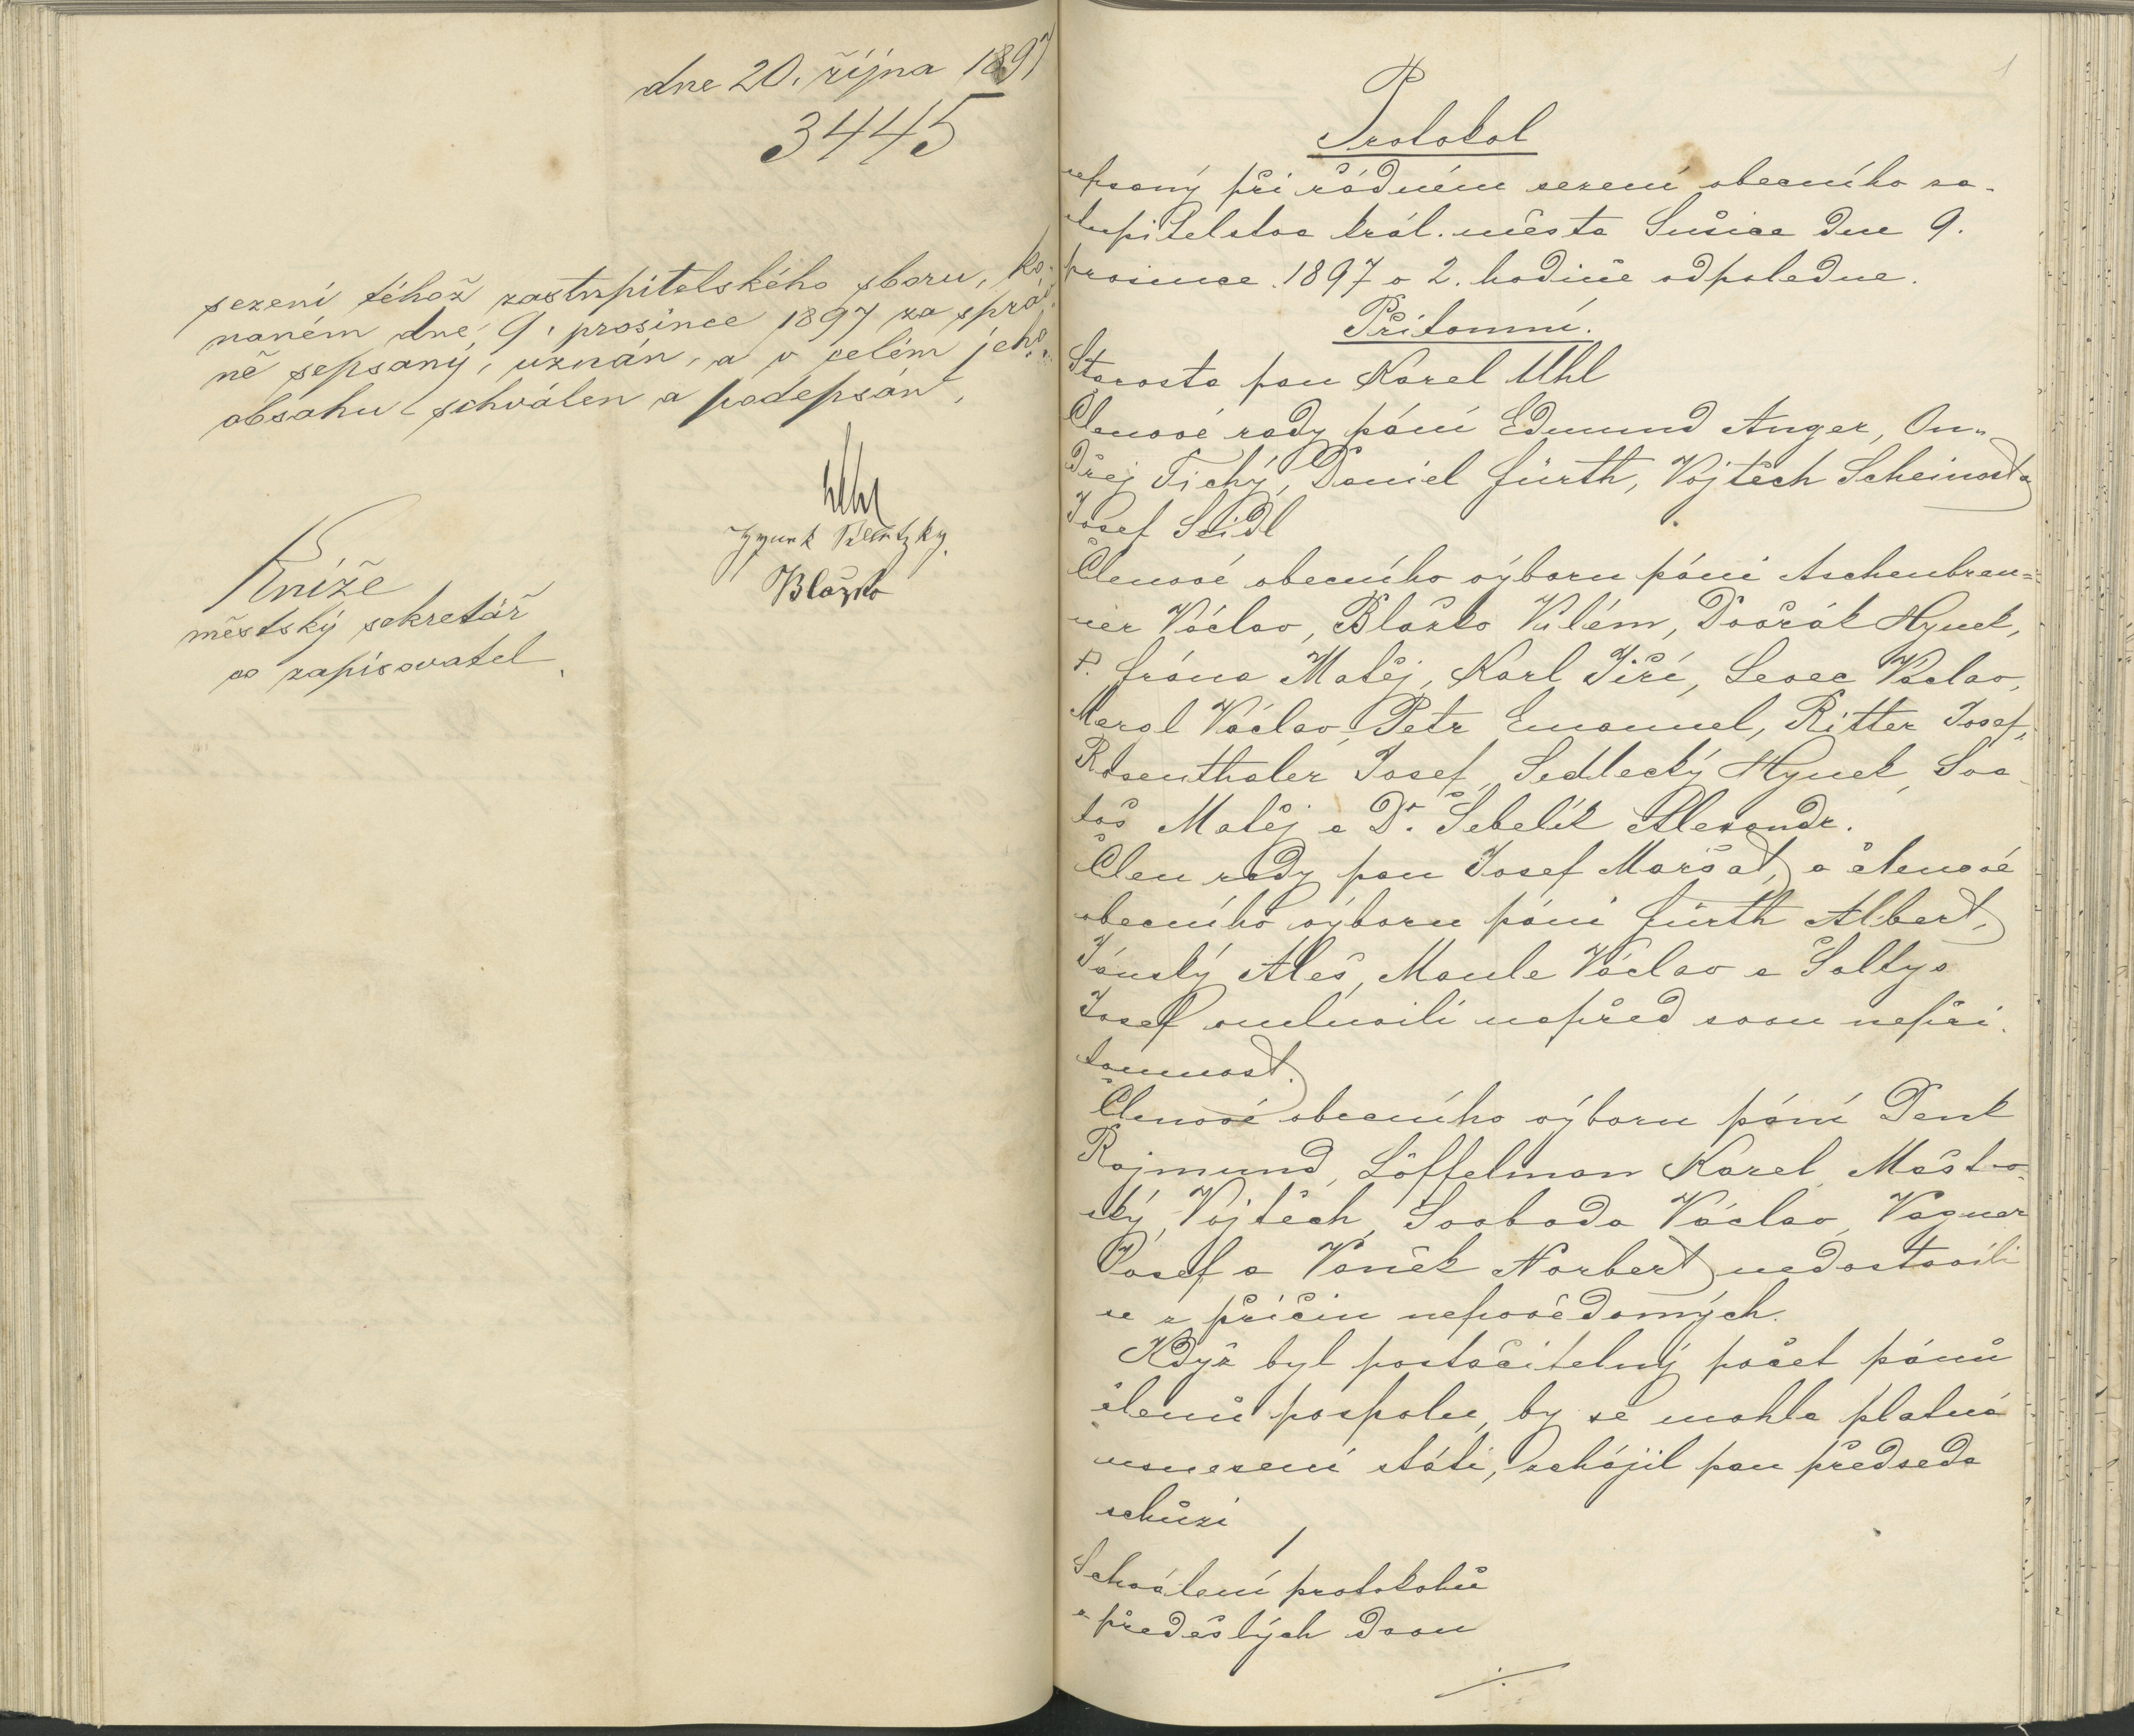 dne 20. října 1897
3445
sezení téhož zastupitelského sboru, ko-
naném dne 9. prosince 1897 za správ-
ně sepsaný, uznán, a v celém jeho
obsahu schválen a podepsán.
Uhl
Blažko
Kníže
městský sekretář
co zapisovatel
1
Protokol
sepsaný při řádném sezení obecního za-
stupitelstva král. města Sušice dne 9.
prosince 1897 o 2. hodině odpoledne.
Přítomní.
Starosta pan Karel Uhl
Členové rady páni Edmund Anger, On-
dřej Tichý, Daniel Fürth, Vojtěch Scheinost a
Josef Seidl
Členové obecního výboru páni Aschenbren-
ner Václav, Blažko Vilém, Dvořák Hynek,
P. Frána Matěj, Karl Jiří, Levec Václav,
Mergl Václav, Petr Emanuel, Ritter Josef,
Rosenthaler Josef, Sedlecký Hynek, Sva-
toš Matěj a Dr. Šebelík Alexandr.
Člen rady pan Josef Maršat, a členové
obecního výboru páni Fürth Albert,
Jánský Aleš, Maule Václav a Soltys
Josef omluvili napřed svou nepří-
tomnost.
Členové obecního výboru páni Denk
Rajmund, Löffelman Karel, Mástov-
ský Vojtěch, Svoboda Václav, Vagner
Josef a Vaněk Norbert nedostavili
se z příčin nepovědomých.
Když byl postačitelný počet pánů
členů pospolu, by se mohla platná
usnesení státi, zahájil pan předseda
schůzi
1
Schválení protokolů
z předešlých dvou
./.